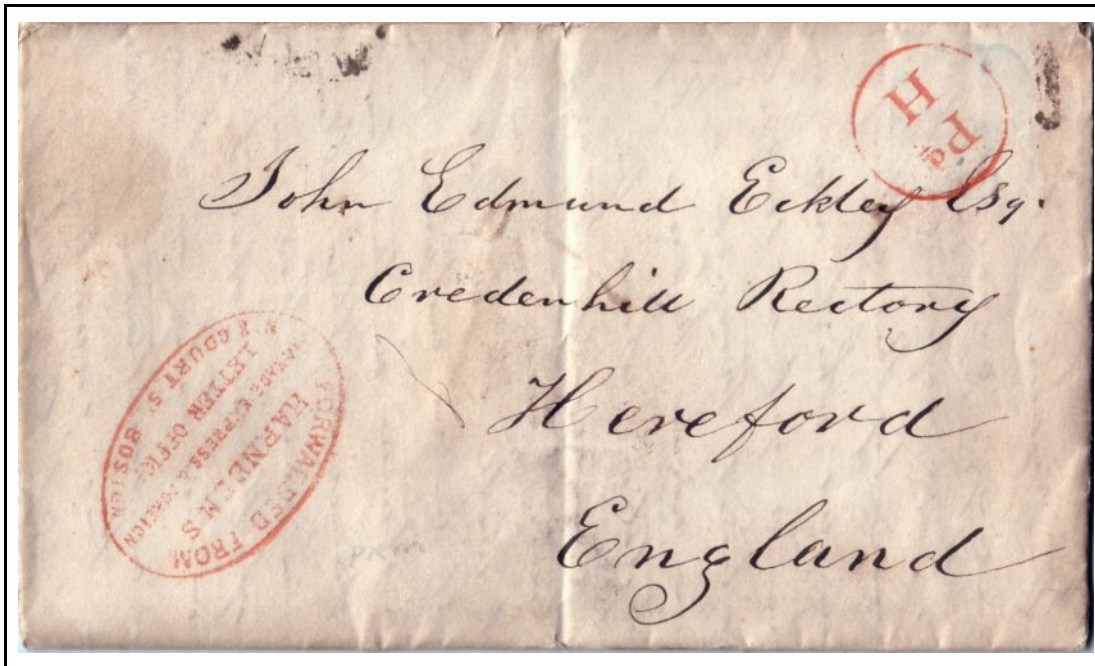 Pd
H
John Edmund Eckley Esqr.
Credenhill Rectory
Hereford
England
FORWARDED FROM
HARNDEN'S
PACKAGE EXPRESS & FOREIGN
LETTER OFFICE
Nº 8 COURT ST BOSTON